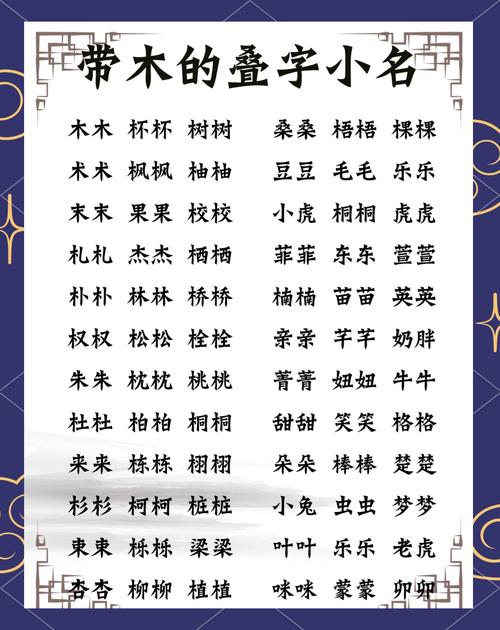 带木的叠字小名
木木 杯杯 树树 桑桑 梧梧 棵棵
术术 枫枫 柚柚 豆豆 毛毛 乐乐
末末 果果 校校 小虎 桐桐 虎虎
札札 杰杰 栖栖 菲菲 东东 萱萱
朴朴 林林 桥桥 楠楠 苗苗 英英
权权 松松 栓栓 亲亲 芊芊 奶胖
朱朱 枕枕 桃桃 菁菁 妞妞 牛牛
杜杜 柏柏 桐桐 甜甜 笑笑 格格
来来 栋栋 栩栩 朵朵 棒棒 楚楚
杉杉 柯柯 桩桩 小兔 虫虫 梦梦
束束 栎栎 梁梁 叶叶 乐乐 老虎
杏杏 柳柳 植植 咪咪 蒙蒙 卯卯